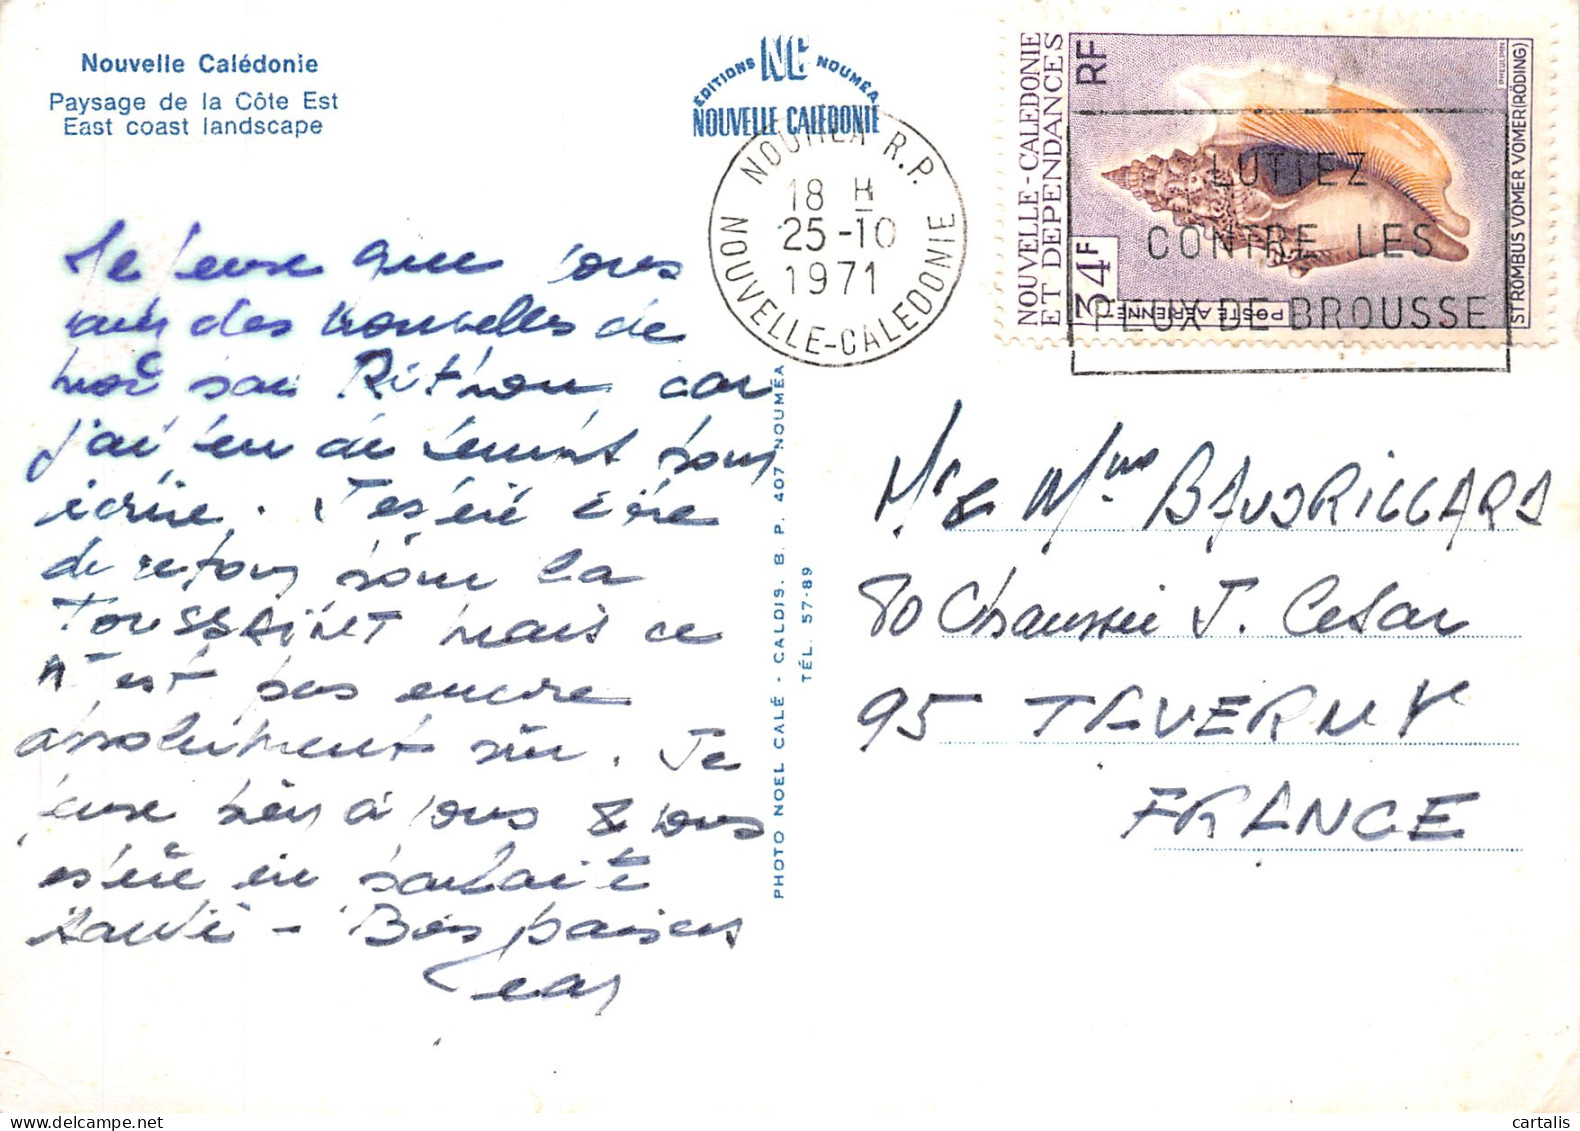 Nouvelle Calédonie
Paysage de la Côte Est
East coast landscape
ÉDITIONS NC NOUMÉA
NOUVELLE CALÉDONIE
NOUMEA R.P.
18 H
25-10
1971
NOUVELLE-CALEDONIE
NOUVELLE-CALEDONIE
ET DEPENDANCES
RF
34F
POSTE AÉRIENNE
PHEULPIN
STROMBUS VOMER VOMER (RÖDING)
LUTTEZ
CONTRE LES
FEUX DE BROUSSE
Je pense que vous
avez des nouvelles de
moi par car
j'ai pu lui écrire
J'espère être
de retour pour la
TOUSSAINT mais ce
n'est pas encore
absolument sûr. Je
pense bien à vous & vous
espère en parfaite
santé - Bons baisers
Jean
PHOTO NOEL CALÉ - CALDIS. B. P. 407 NOUMÉA
TÉL. 57-89
Mr & Mme BAUDRILLARD
80 Chaussée J. Cesar
95 TAVERNY
FRANCE
cartalis